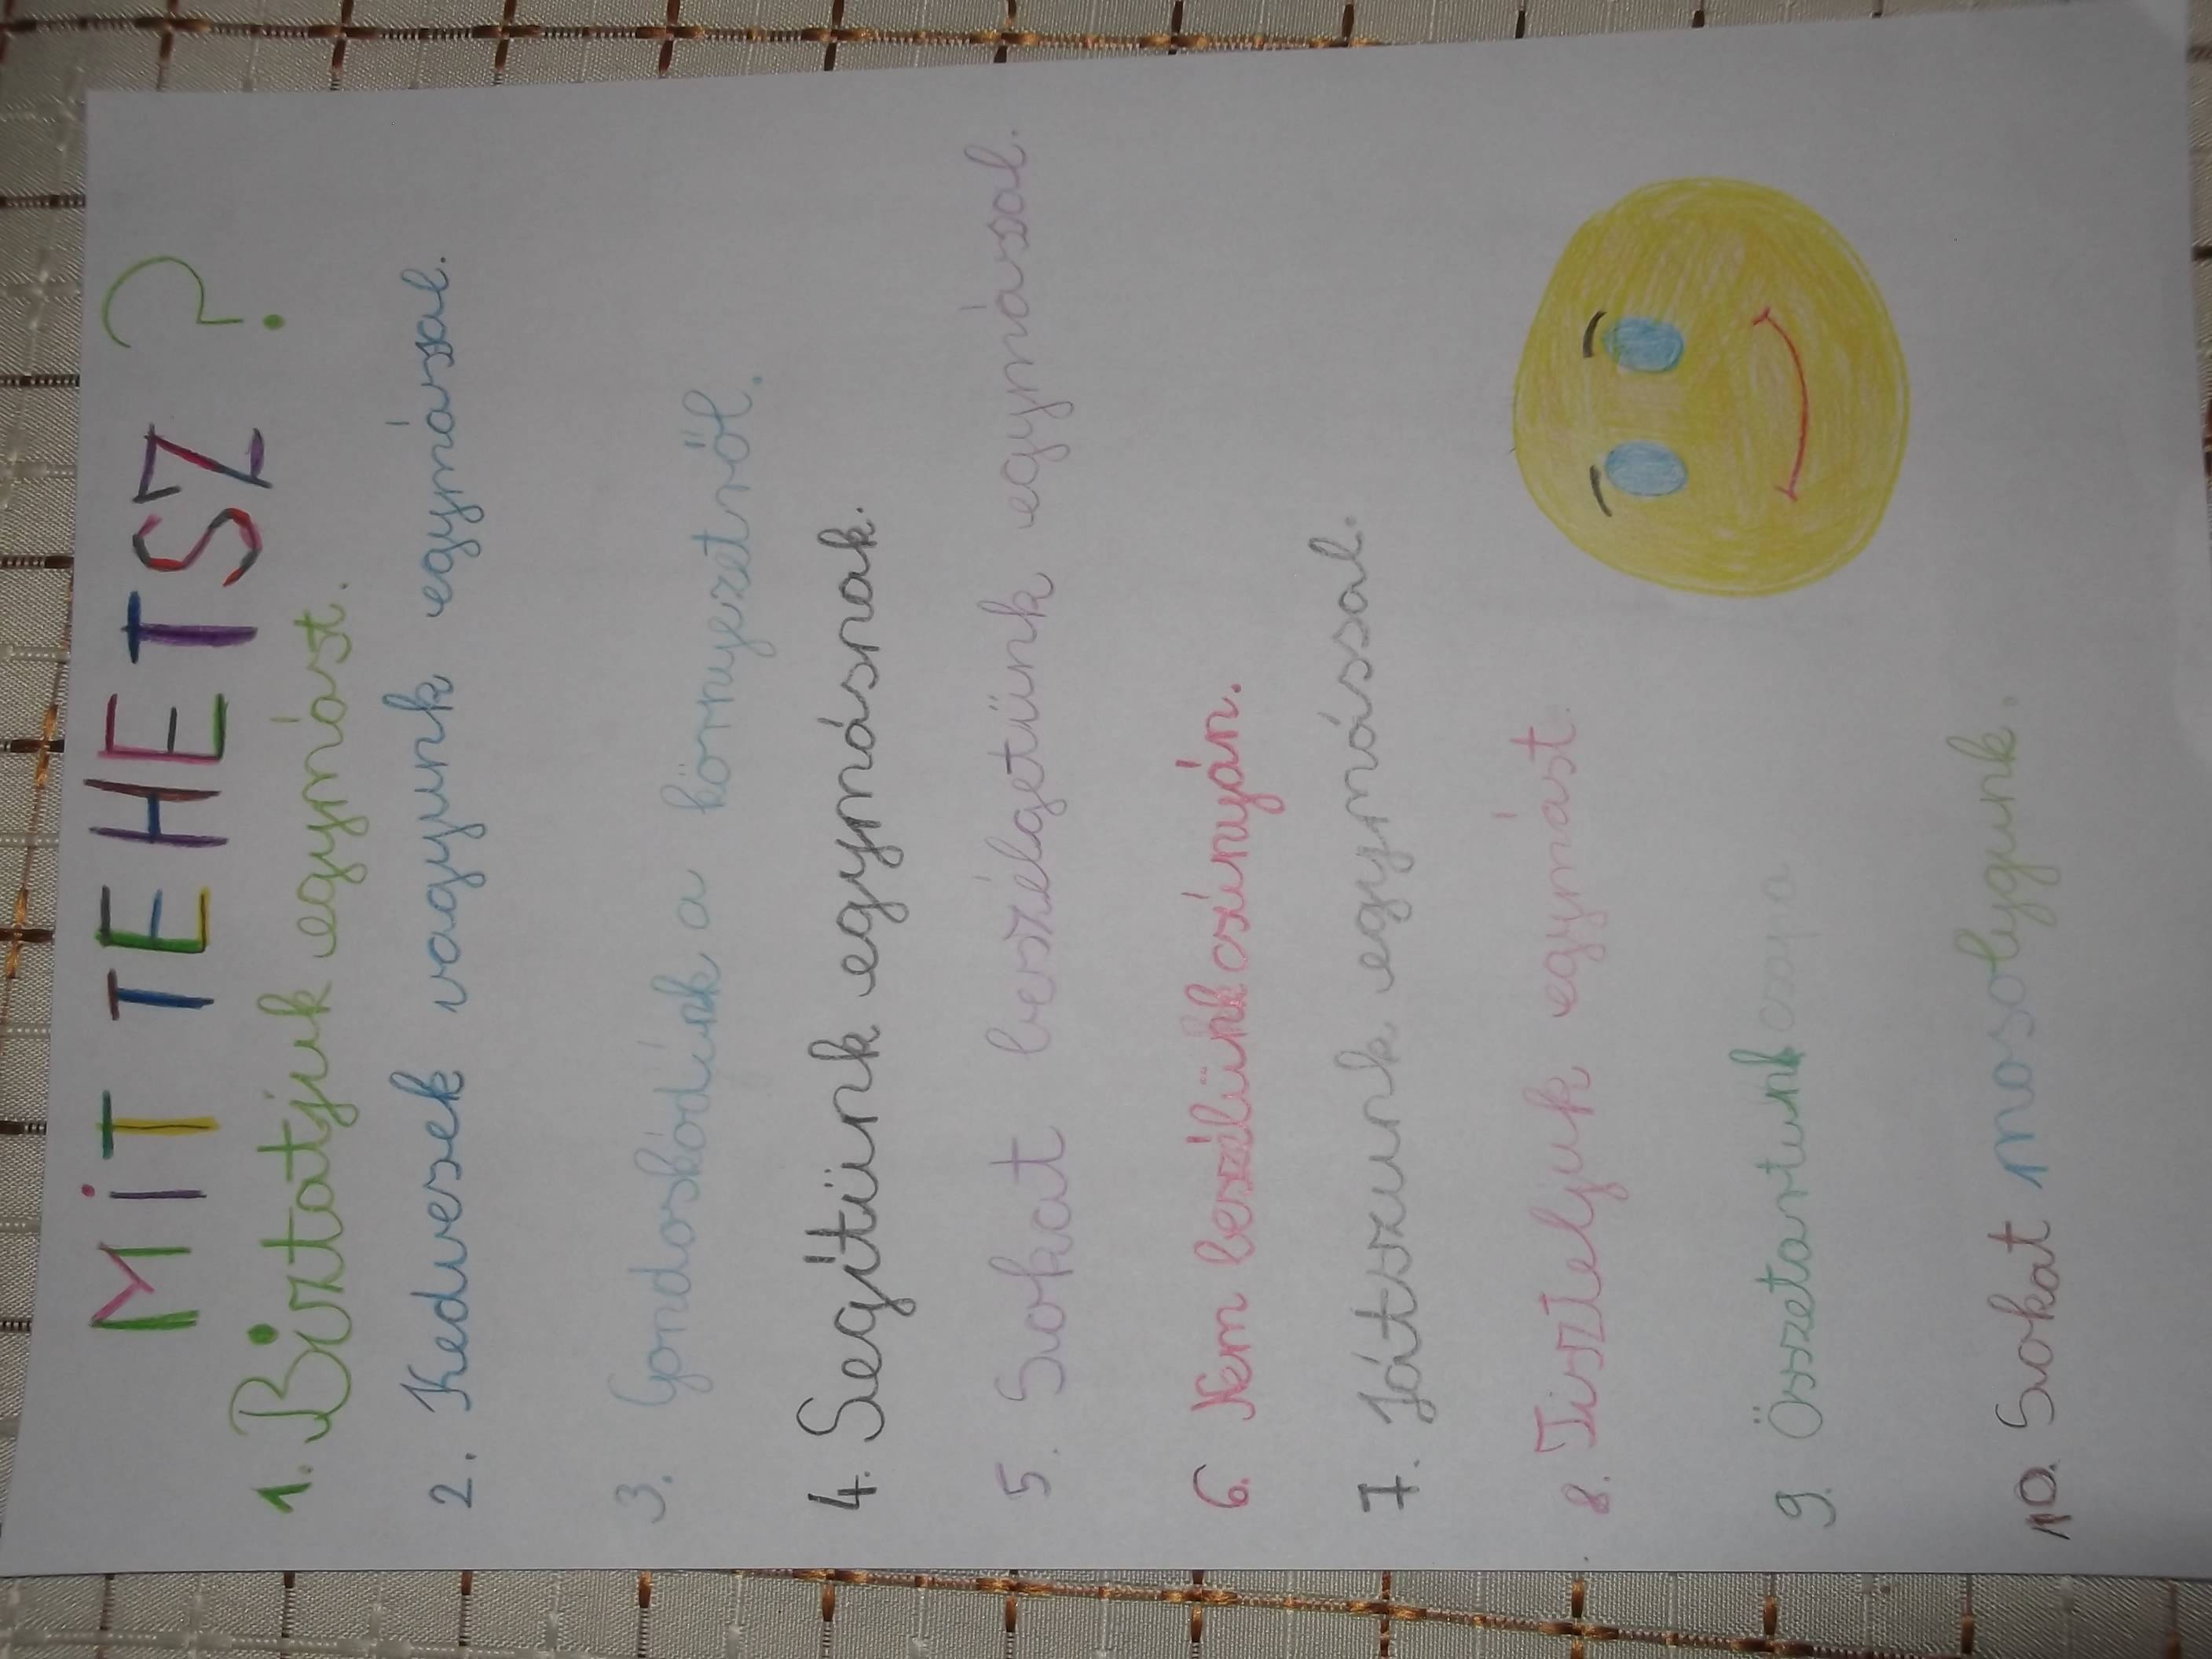 MiT TEHETSZ ?
1. Biztatjuk egymást.
2. Kedvesek vagyunk egymással.
3. Gondoskodunk a környezetről.
4. Segítünk egymásnak.
5. Sokat beszélgetünk egymással.
6. Nem beszélünk csúnyán.
7. Játszunk egymással.
8. Tiszteljük egymást.
9. Összetartunk
10. Sokat mosolygunk.